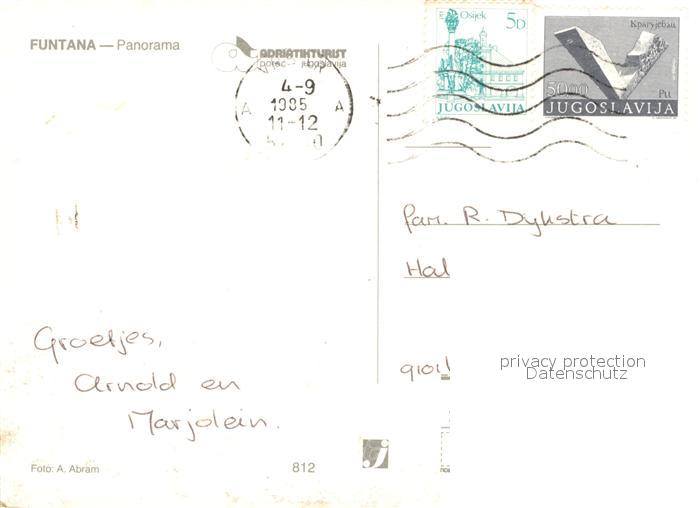 FUNTANA — Panorama
ADRIATIKTURIST
poreč - jugoslavija
4-9
1985
A A
11-12
Osijek
5D
JUGOSLAVIJA
Крагујевац
50.00 Ри
JUGOSLAVIJA
fam. R. Dykstra
Hal
9101
privacy protection
Datenschutz
Groetjes,
Arnold en
Marjolein.
Foto: A. Abram
812